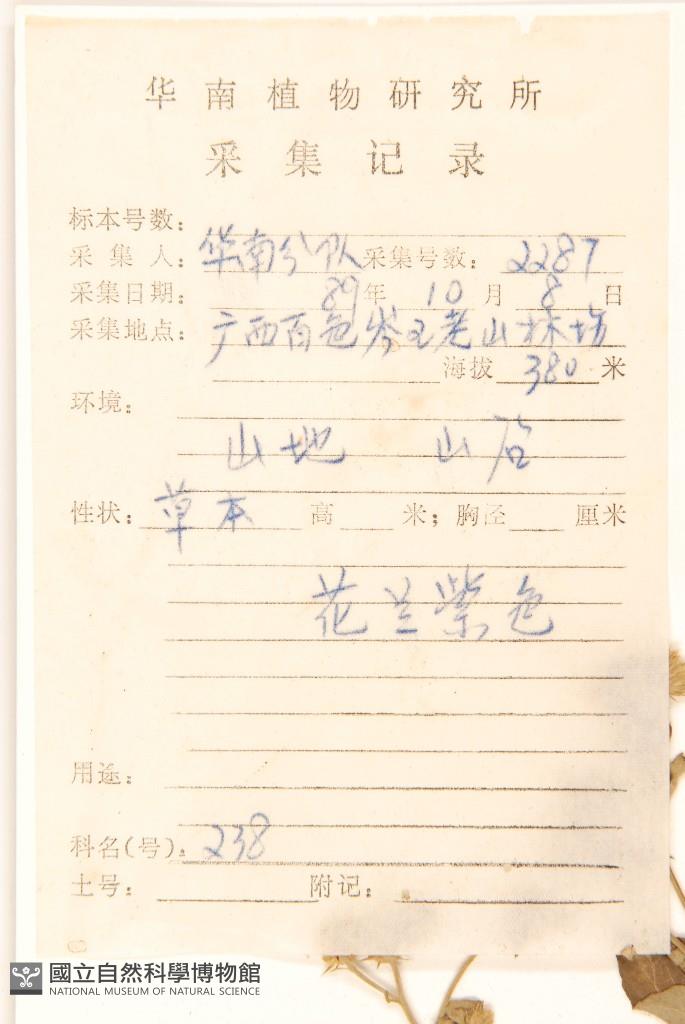 华南植物研究所
采集记录
标本号数:
采集人: 华南分队 采集号数: 2287
采集日期: 89年 10月 8日
采集地点: 广西百色岑王老山林场
海拔 380 米
环境:
山地 山谷
性状: 草本 高 米; 胸径 厘米
花兰紫色
用途:
科名(号): 238
土号: 附记:
國立自然科學博物館
NATIONAL MUSEUM OF NATURAL SCIENCE